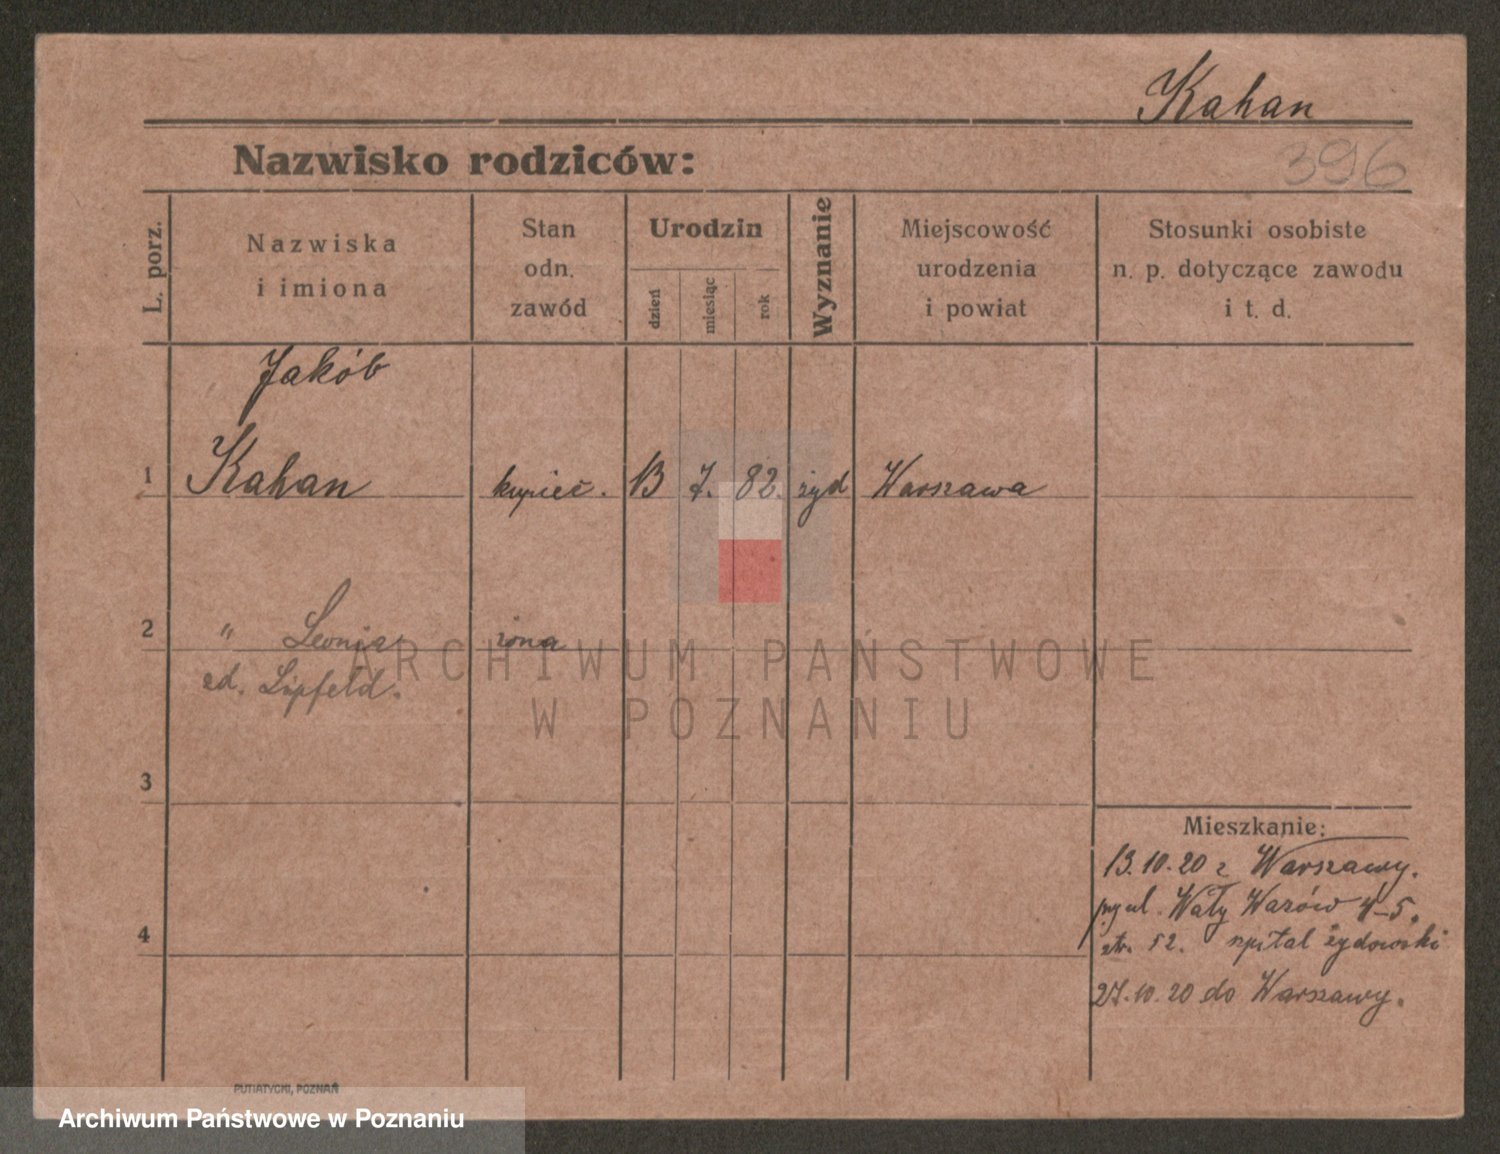 Kahan
396
Nazwisko rodziców:
L. porz.
Nazwiska
i imiona
Stan
odn.
zawód
Urodzin
dzień
miesiąc
rok
Wyznanie
Miejscowość
urodzenia
i powiat
Stosunki osobiste
n. p. dotyczące zawodu
i t. d.
Jakób
1 Kahan kupiec. 13 7. 82. żyd Warszawa
2 " Leonja żona
zd. Lipfeld.
ARCHIWUM PAŃSTWOWE
W POZNANIU
3
Mieszkanie:
13.10.20 z Warszawy.
ul. Wały Wazów 4-5.
4
str. 52. szpital żydowski
27.10.20 do Warszawy.
PUTIATYCKI, POZNAŃ
Archiwum Państwowe w Poznaniu